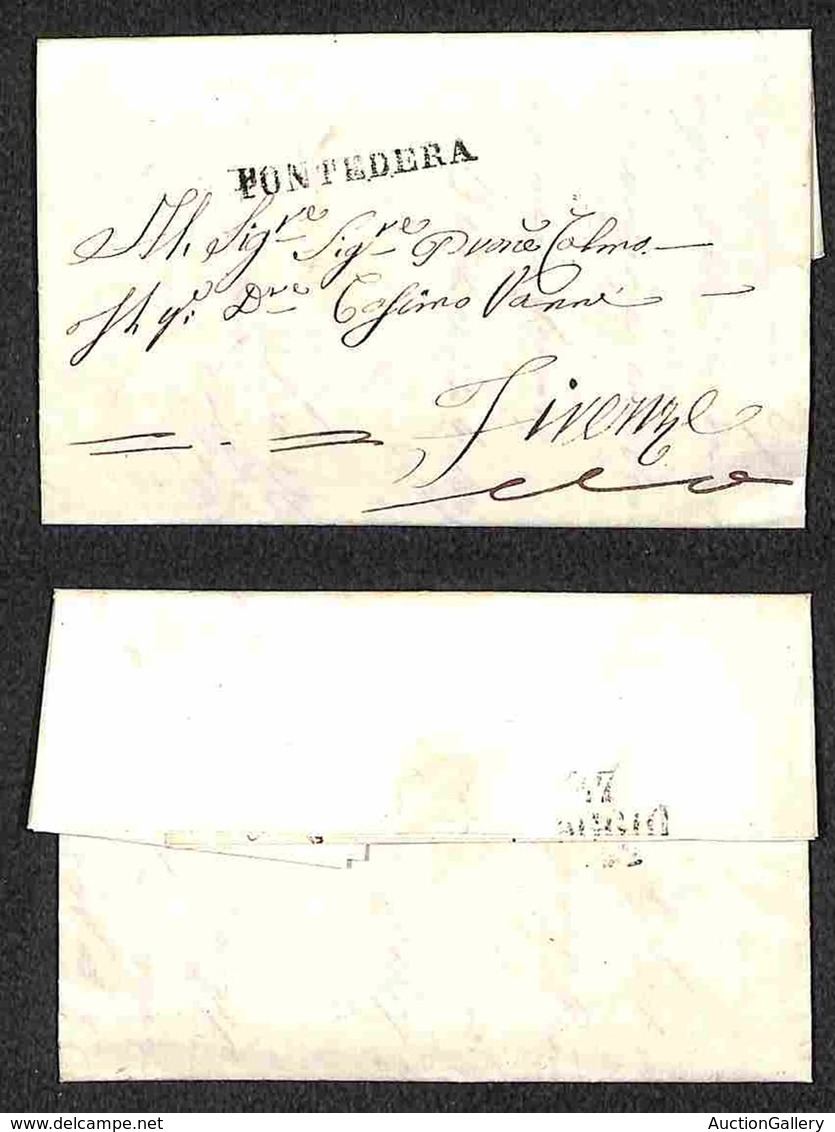 PONTEDERA
Ill. Sig.re Sig.re Prone Colmo.
Il Sig.r D.re Cosimo Vanni
Firenze
27
www.delcampe.net
AuctionGallery